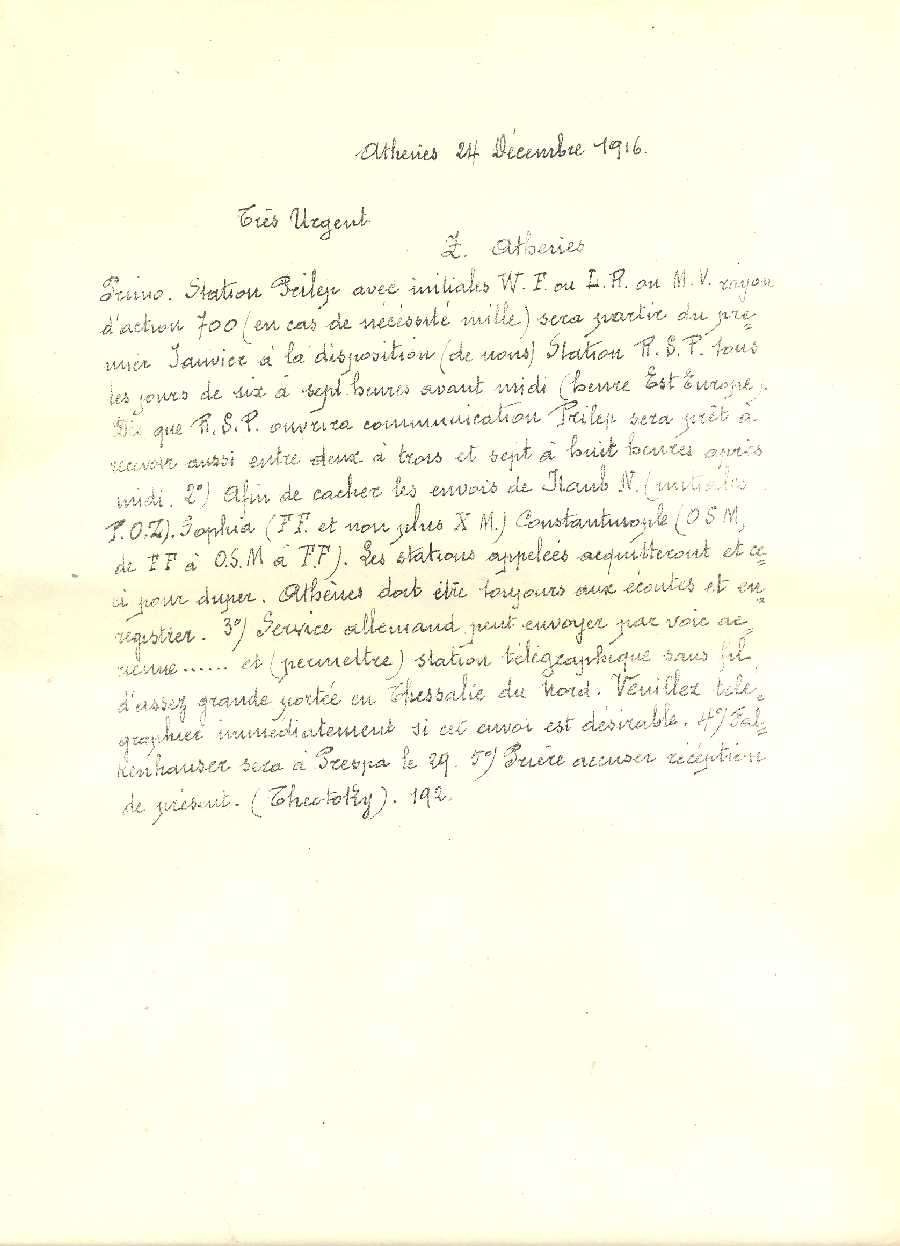 Athenes 24 Décembre 1916.
Très Urgent
Z. Athenes
Primo. Station Prilep avec initiales W. F. ou L. R. ou M. V. rayon
d'action 700 (en cas de nécéssité mille) sera partir du pre=
mier Janvier à la disposition (de nous) Station R. S. P. tous
les jours de six à sept heures avant midi (heure Est Europe).
Dès que R. S. P. ouvrira communication Prilep sera prêt à
recevoir aussi entre deux à trois et sept à huit heures après
midi. 2º) Afin de cacher les envois de N. (initiales
P.O.Z). Sophia (F F. et non plus X M.) Constantinople (O S M,
de F F à O.S.M à F F). Les stations appelées acquitteront et ce=
ci pour duper. Athènes doit être toujours aux écoutes et en=
régistrer. 3º) Service allemand peut envoyer par voie ae=
rienne ...... et (permettre) station télégraphique sans fil
d'assez grande portée en Thessalie du Nord. Veuillez tele=
graphier immédiatement si cet envoi est désirable. 4º) Fal=
kenhauser sera à Prespa le 29. 5º) Prière accuser récéption
de présent. (Theotoky). 192.